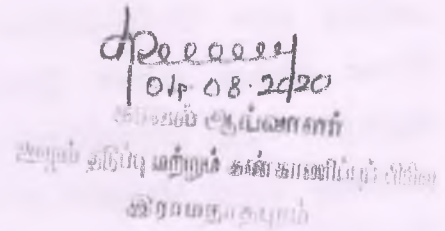 04.08.2020
காவல் ஆய்வாளர்
ஊழல் தடுப்பு மற்றும் கண்காணிப்புப் பிரிவு
இராமநாதபுரம்